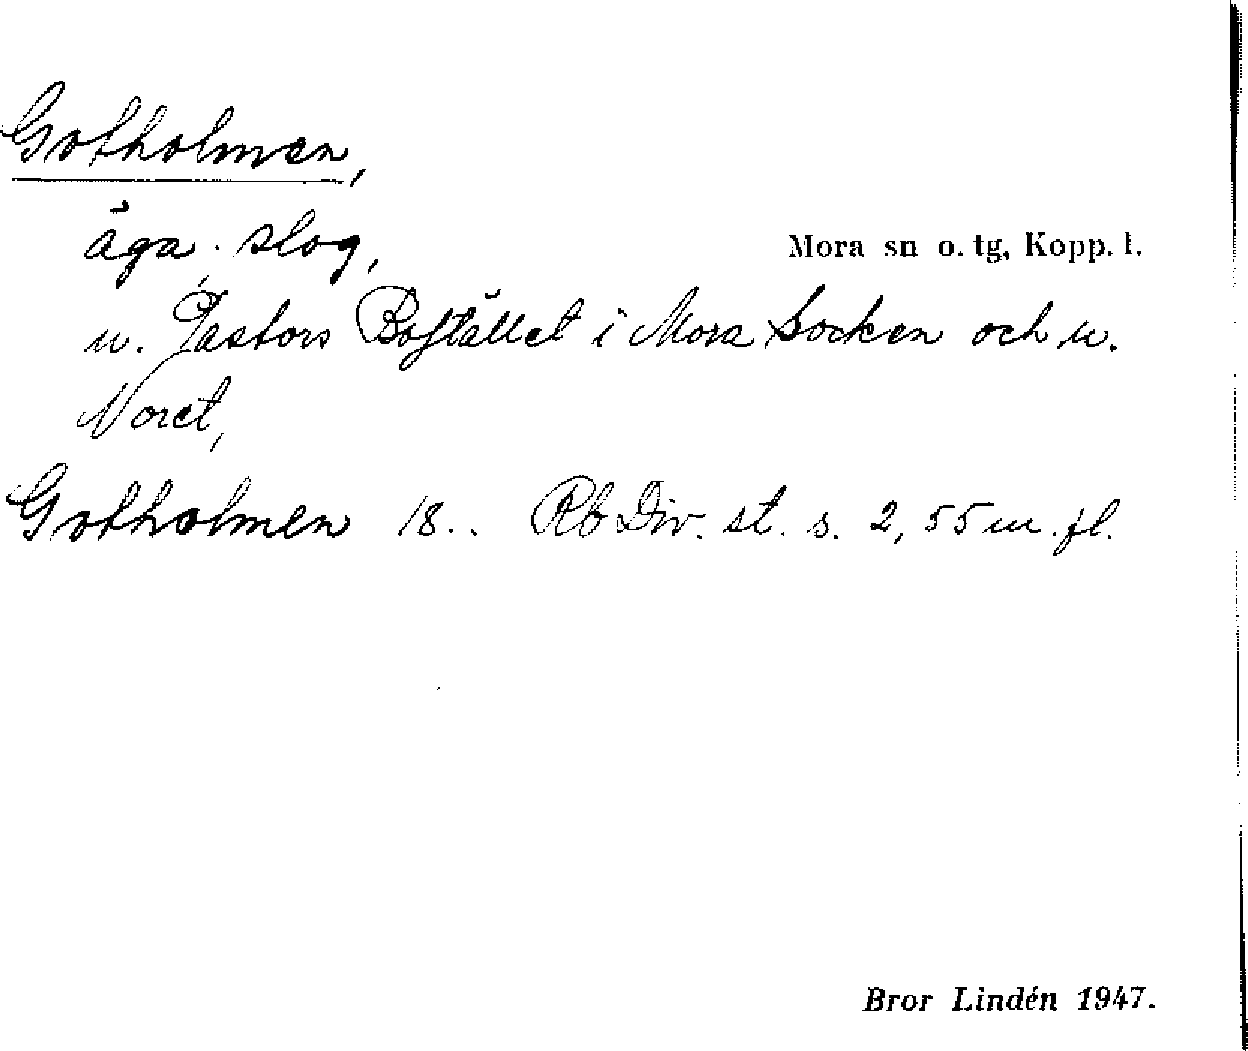 Gotholmen,
äga, slog,
Mora sn o. tg, Kopp. l.
u. Pastors Boställlet i Mora Socken och u.
Noret,
Gotholmen 18.. Rb Div. st. s. 2, 55 m. fl.
Bror Lindén 1947.